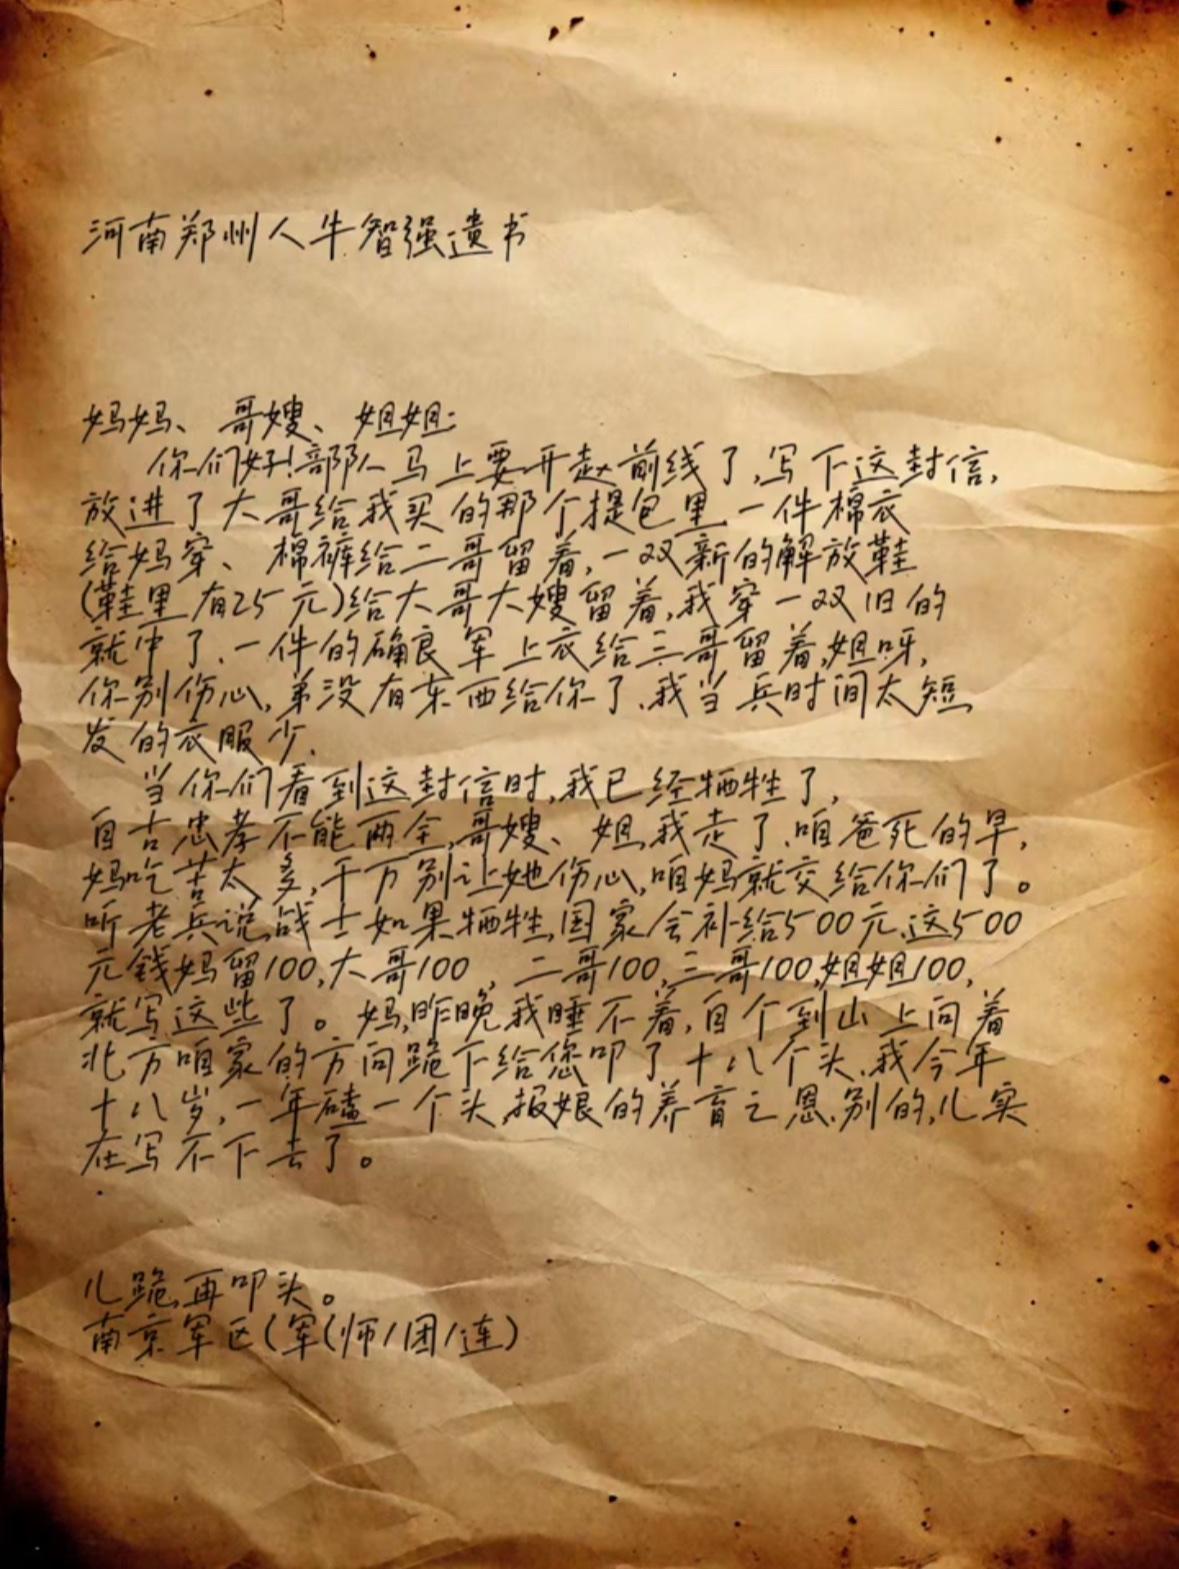 河南郑州人牛智强遗书
妈妈、哥嫂、姐姐:
你们好!部队马上要开赴前线了,写下这封信,
放进了大哥给我买的那个提包里,一件棉衣
给妈穿、棉裤给二哥留着,一双新的解放鞋
(鞋里有25元)给大哥大嫂留着,我穿一双旧的
就中了、一件的确良军上衣给三哥留着,姐呀,
你别伤心,弟没有东西给你了、我当兵时间太短
发的衣服少、
当你们看到这封信时,我已经牺牲了,
自古忠孝不能两全,哥嫂、姐,我走了、咱爸死的早,
妈吃苦太多,千万别让她伤心,咱妈就交给你们了。
听老兵说,战士如果牺牲,国家会补给500元、这500
元钱妈留100,大哥100,二哥100,三哥100,姐姐100,
就写这些了。妈,昨晚我睡不着,自个到山上向着
北方咱家的方向跪下给您叩了十八个头、我今年
十八岁,一年磕一个头,报娘的养育之恩、别的,儿实
在写不下去了。
儿跪,再叩头。
南京军区(军(师/团/连)